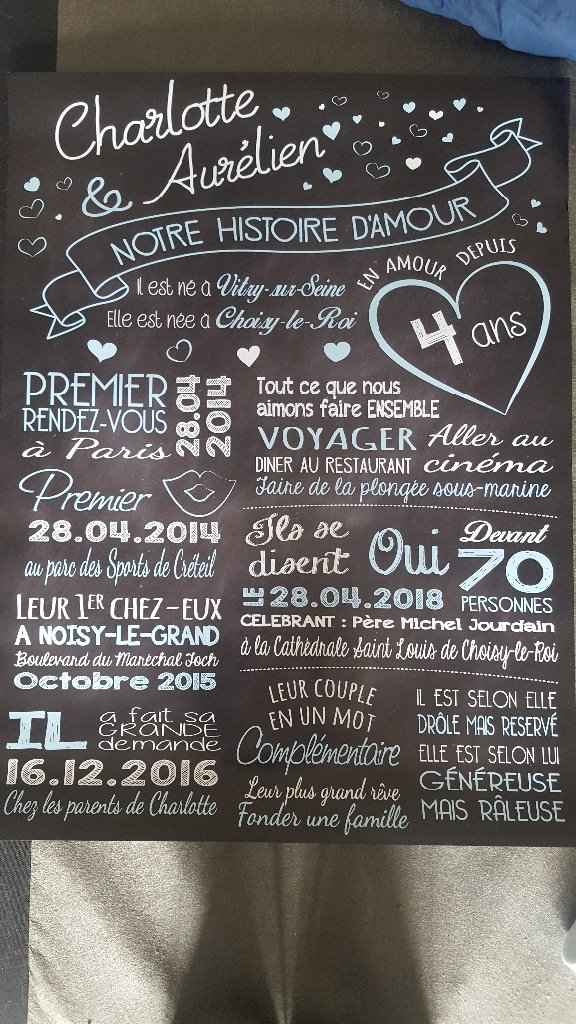 Charlotte
& Aurélien
NOTRE HISTOIRE D'AMOUR
Il est né à Vitry-sur-Seine
Elle est née à Choisy-le-Roi
EN AMOUR DEPUIS
4 ans
PREMIER
RENDEZ-VOUS
à Paris
28.04
2014
Premier
28.04.2014
au parc des Sports de Créteil
LEUR 1ER CHEZ-EUX
A NOISY-LE-GRAND
Boulevard du Maréchal Foch
Octobre 2015
IL a fait sa
GRANDE
demande
16.12.2016
Chez les parents de Charlotte
Tout ce que nous
aimons faire ENSEMBLE
VOYAGER Aller au
DINER AU RESTAURANT cinéma
Faire de la plongée sous-marine
Ils se
disent Oui
LE 28.04.2018
Devant
70
PERSONNES
CELEBRANT : Père Michel Jourdain
à la Cathédrale Saint Louis de Choisy-le-Roi
LEUR COUPLE
EN UN MOT
Complémentaire
Leur plus grand rêve
Fonder une famille
IL EST SELON ELLE
DRÔLE MAIS RESERVÉ
ELLE EST SELON LUI
GÉNÉREUSE
MAIS RÂLEUSE